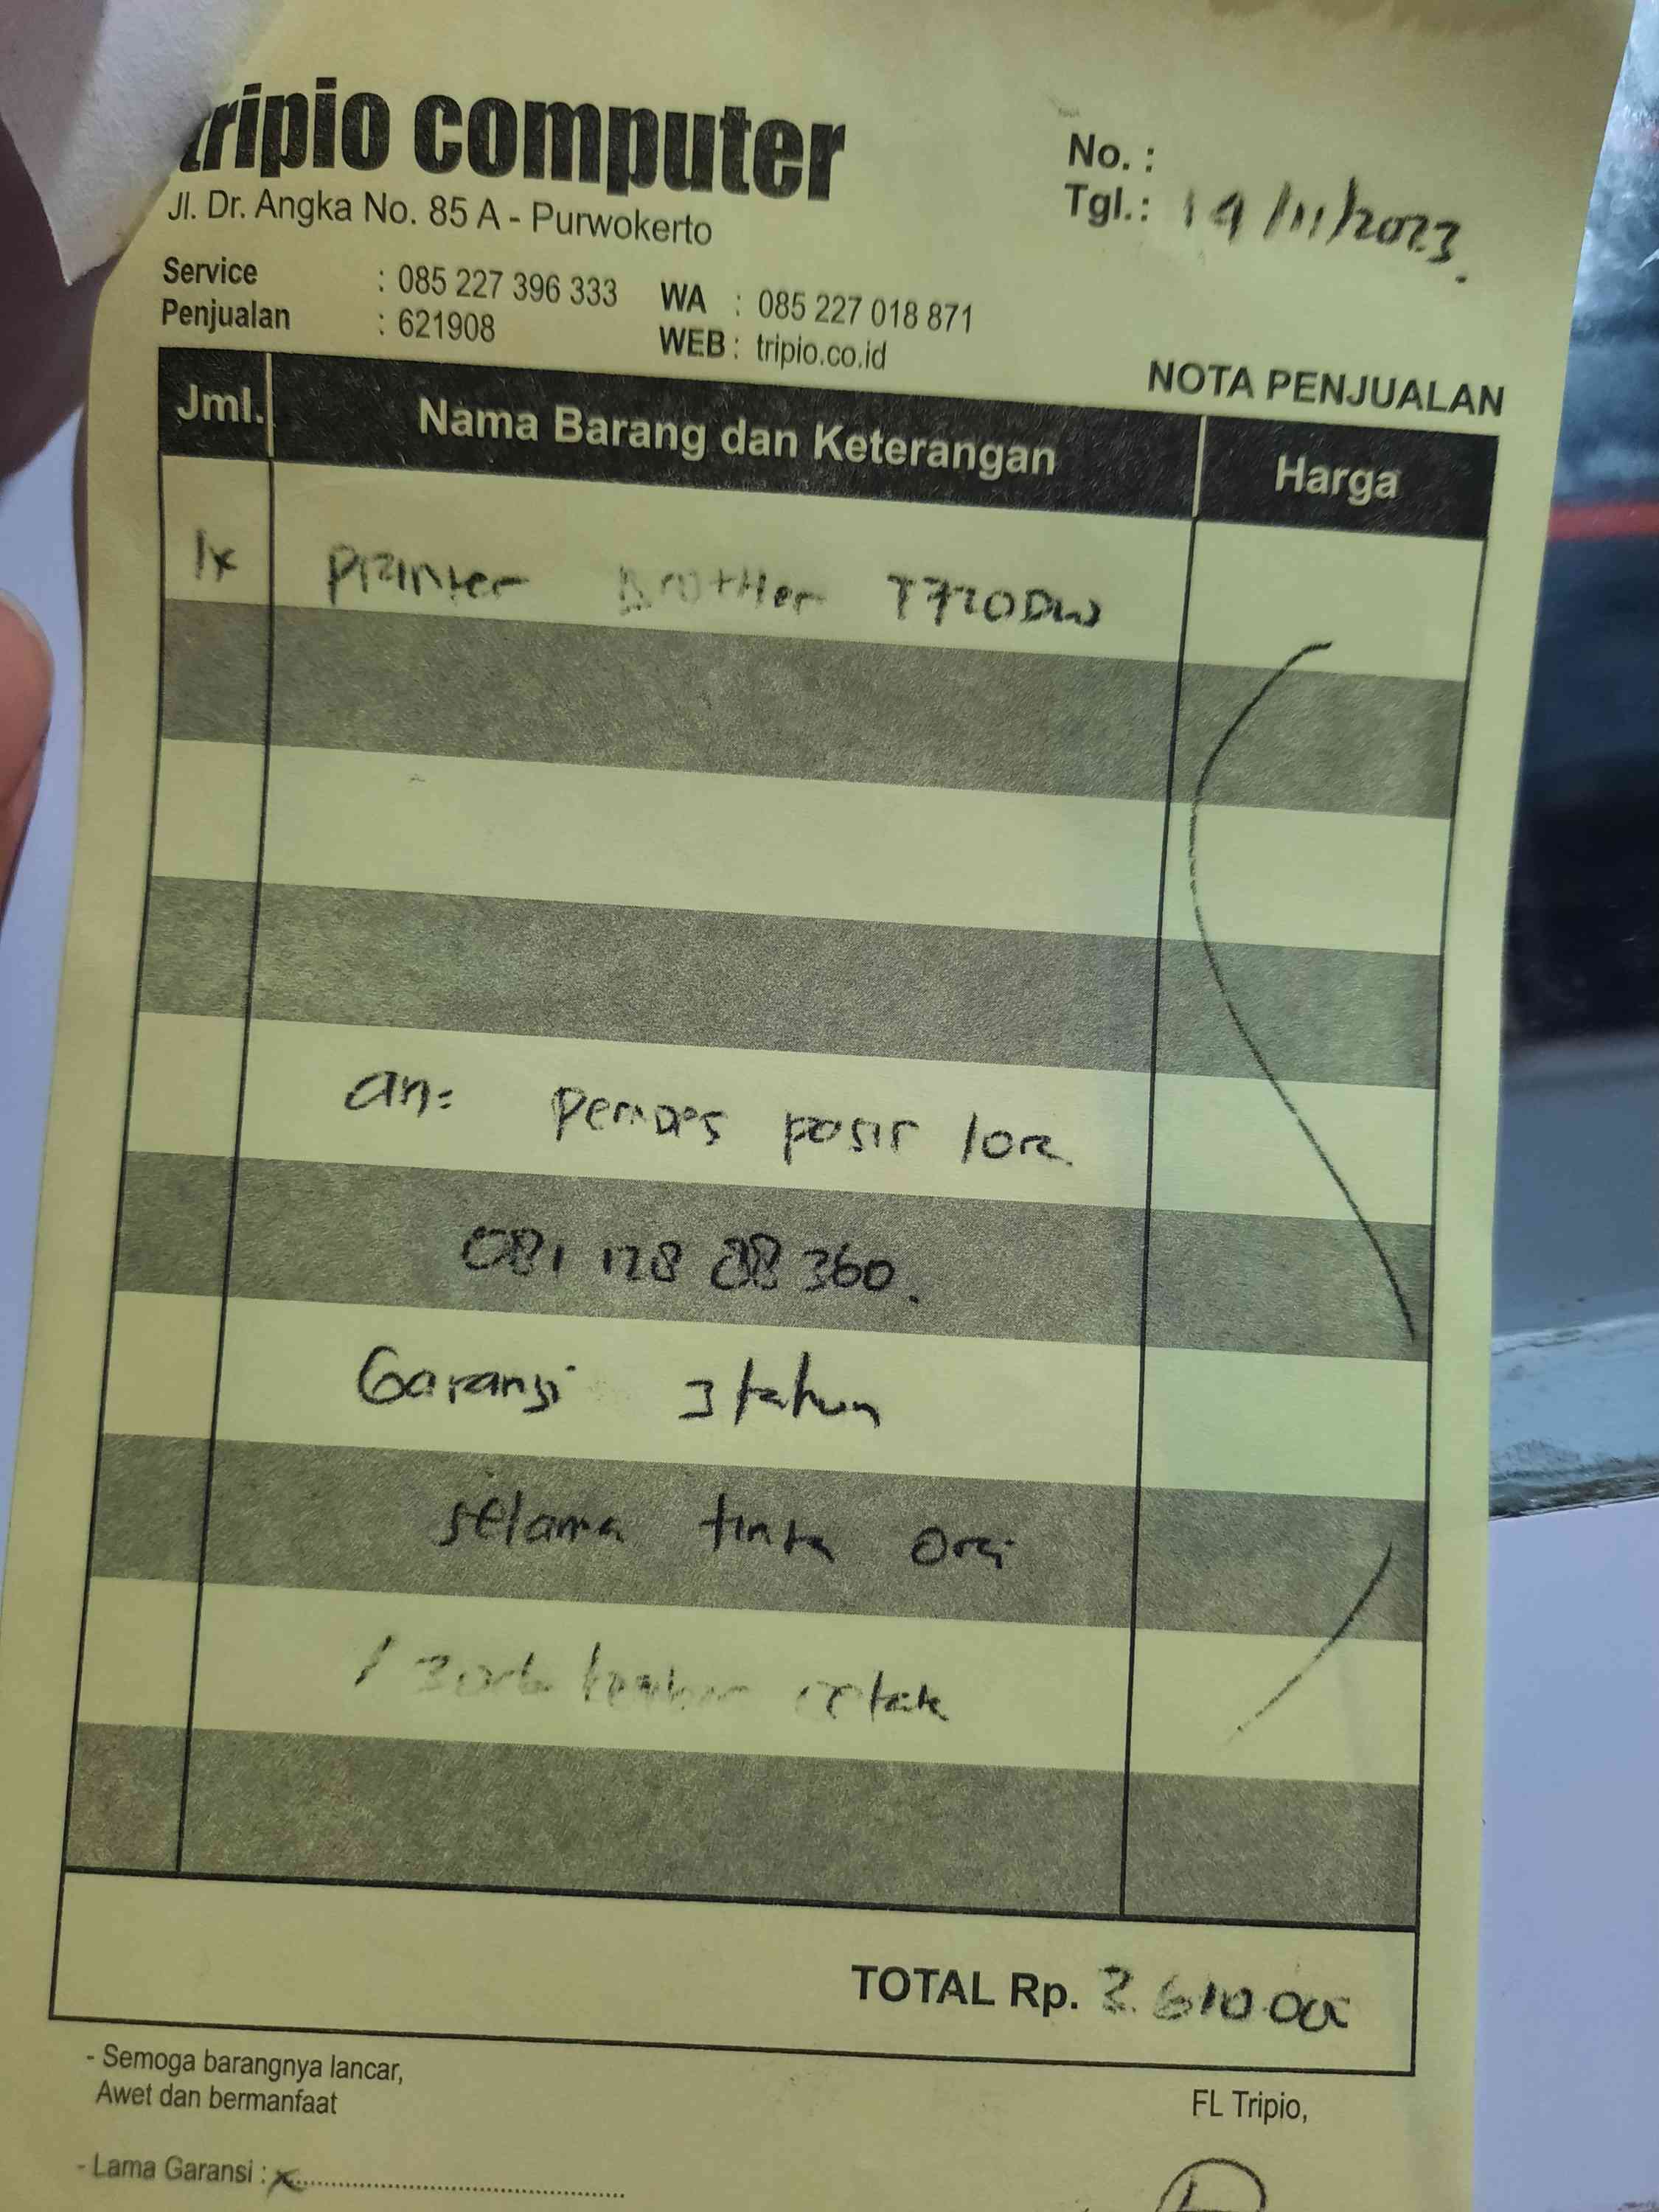 tripio computer
Jl. Dr. Angka No. 85 A - Purwokerto
No. :
Tgl.: 19/11/2023.
Service : 085 227 396 333 WA : 085 227 018 871
Penjualan : 621908 WEB : tripio.co.id
NOTA PENJUALAN
Jml. Nama Barang dan Keterangan Harga
1x Printer Brother T720DW
an: Pemdes pasir lor
081 128 88 360.
Garansi 3 tahun
selama tinta ori
/ 30rb cetak
TOTAL Rp. 3.610.000
- Semoga barangnya lancar,
Awet dan bermanfaat
FL Tripio,
- Lama Garansi : x